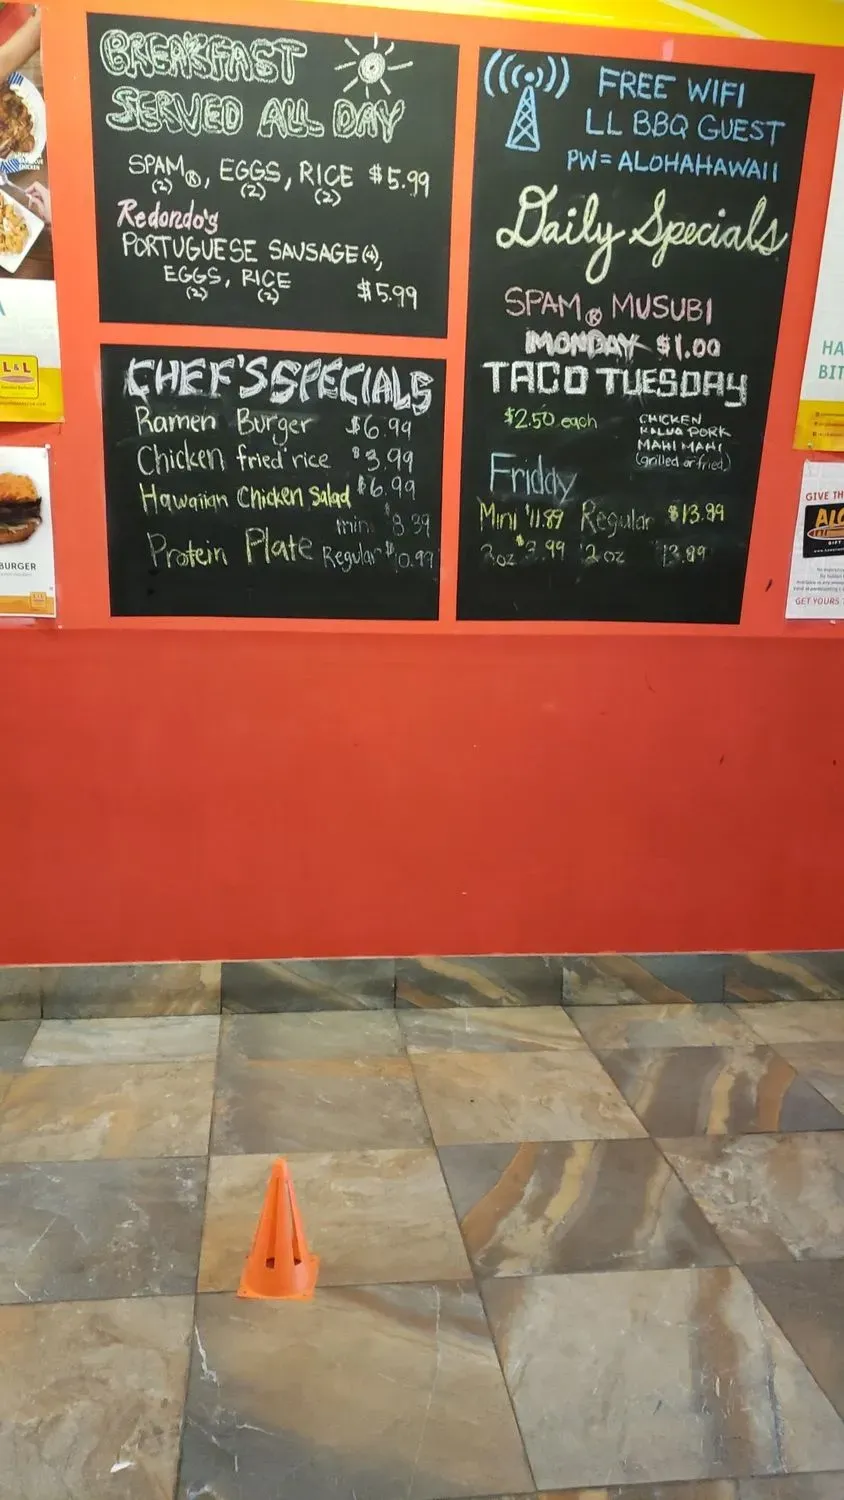 BREAKFAST
SERVED ALL DAY
SPAM®, EGGS, RICE $5.99
(2) (2) (2)
Redondo's
PORTUGUESE SAUSAGE (4),
EGGS, RICE
(2) (2) $5.99
CHEF'S SPECIALS
Ramen Burger $6.99
Chicken fried rice $3.99
Hawaiian Chicken Salad $6.99
mini $8.39
Protein Plate Regular $10.99
FREE WIFI
LL BBQ GUEST
PW=ALOHAHAWAII
Daily Specials
SPAM® MUSUBI
MONDAY $1.00
TACO TUESDAY
$2.50 each
CHICKEN
KALUA PORK
MAHI MAHI
(grilled or fried)
Friday
Mini $11.89 Regular $13.99
oz $3.99 oz
L&L
BURGER
HA
BIT
GIVE TH
ALO
GIFT
GET YOURS